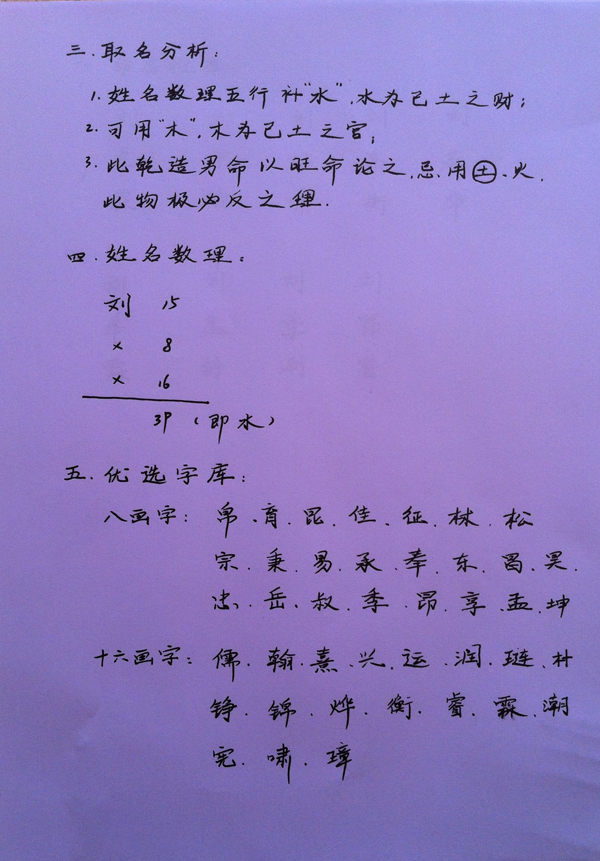 三.取名分析:
1.姓名数理五行补"水",水为己土之财;
2.可用"木",木为己土之官;
3.此乾造男命以旺命论之.忌.用土、火.
此物极必反之理.
四.姓名数理:
刘 15
× 8
× 16
39 (即水)
五.优选字库:
八画字: 帛.育.昆.佳.征.林.松
宗.秉.易.承.奉.东.昌.昊.
忠.岳.叔.季.昂.享.孟.坤
十六画字: 儒.翰.熹.兴.运.润.琏.朴
铮.锦.烨.衡.睿.霖.潮
宪.啸.璋